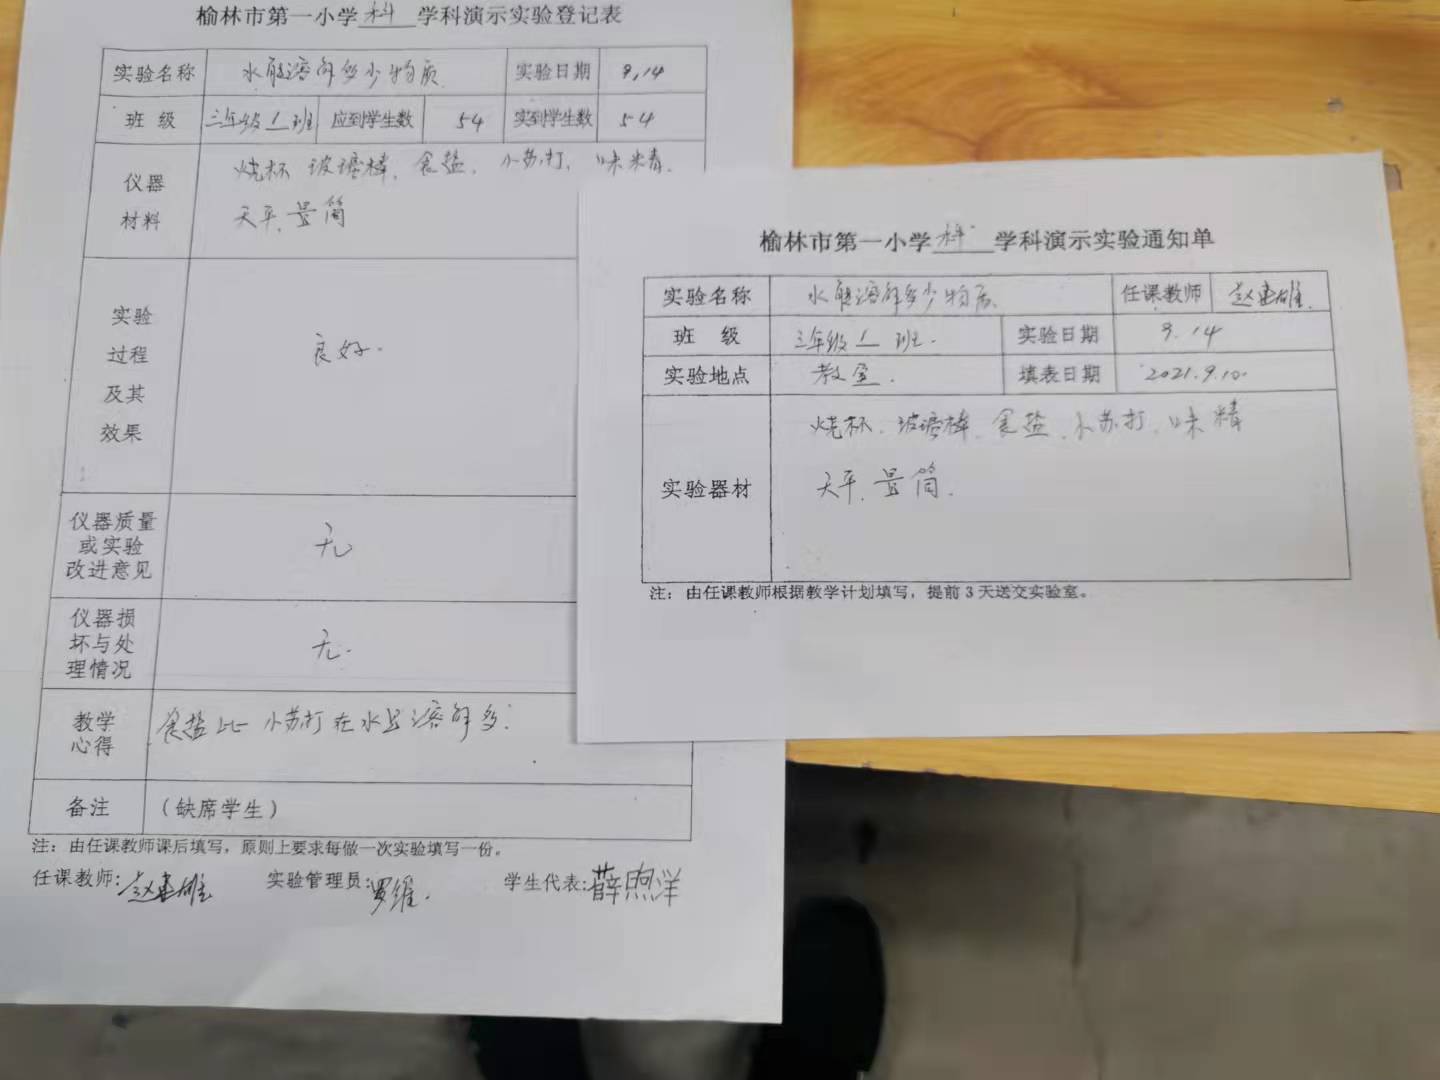 榆林市第一小学科学科演示实验登记表
实验名称 水能溶解多少物质 实验日期 9.14
班级 三年级1班 应到学生数 54 实到学生数 54
仪器材料 烧杯 玻璃棒、食盐、小苏打、味精、
天平、量筒
实验过程及其效果 良好.
仪器质量或实验改进意见 无
仪器损坏与处理情况 无.
教学心得 食盐比小苏打在水里溶解多.
备注 (缺席学生)
注：由任课教师课后填写，原则上要求每做一次实验填写一份。
任课教师:赵建雄 实验管理员:罗维. 学生代表:薛煦洋
榆林市第一小学科学科演示实验通知单
实验名称 水能溶解多少物质 任课教师 赵建雄.
班级 三年级1班. 实验日期 9.14
实验地点 教室. 填表日期 2021.9.10.
实验器材 烧杯、玻璃棒、食盐、小苏打、味精
天平、量筒.
注：由任课教师根据教学计划填写，提前3天送交实验室。